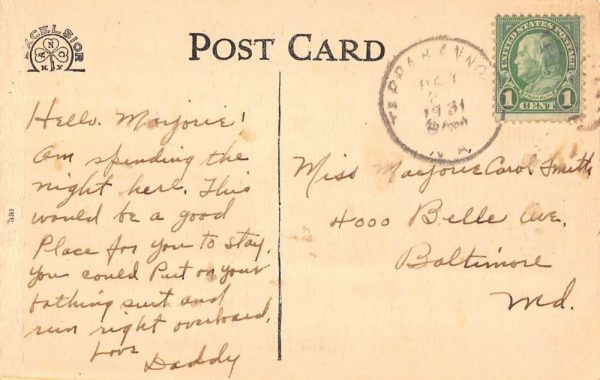 EXCELSIOR
ANCO
N.Y.
POST CARD
UNITED STATES POSTAGE
FRANKLIN
1 CENT 1
TAPPAHANNO
1931
VA
Hello. Marjorie!
Am spending the
night here. This
would be a good
Place for you to stay.
You could Put on your
bathing suit and
run right overboard.
Love
Daddy
Miss Marjorie Carol Smith
4000 Belle Ave.
Baltimore
Md.